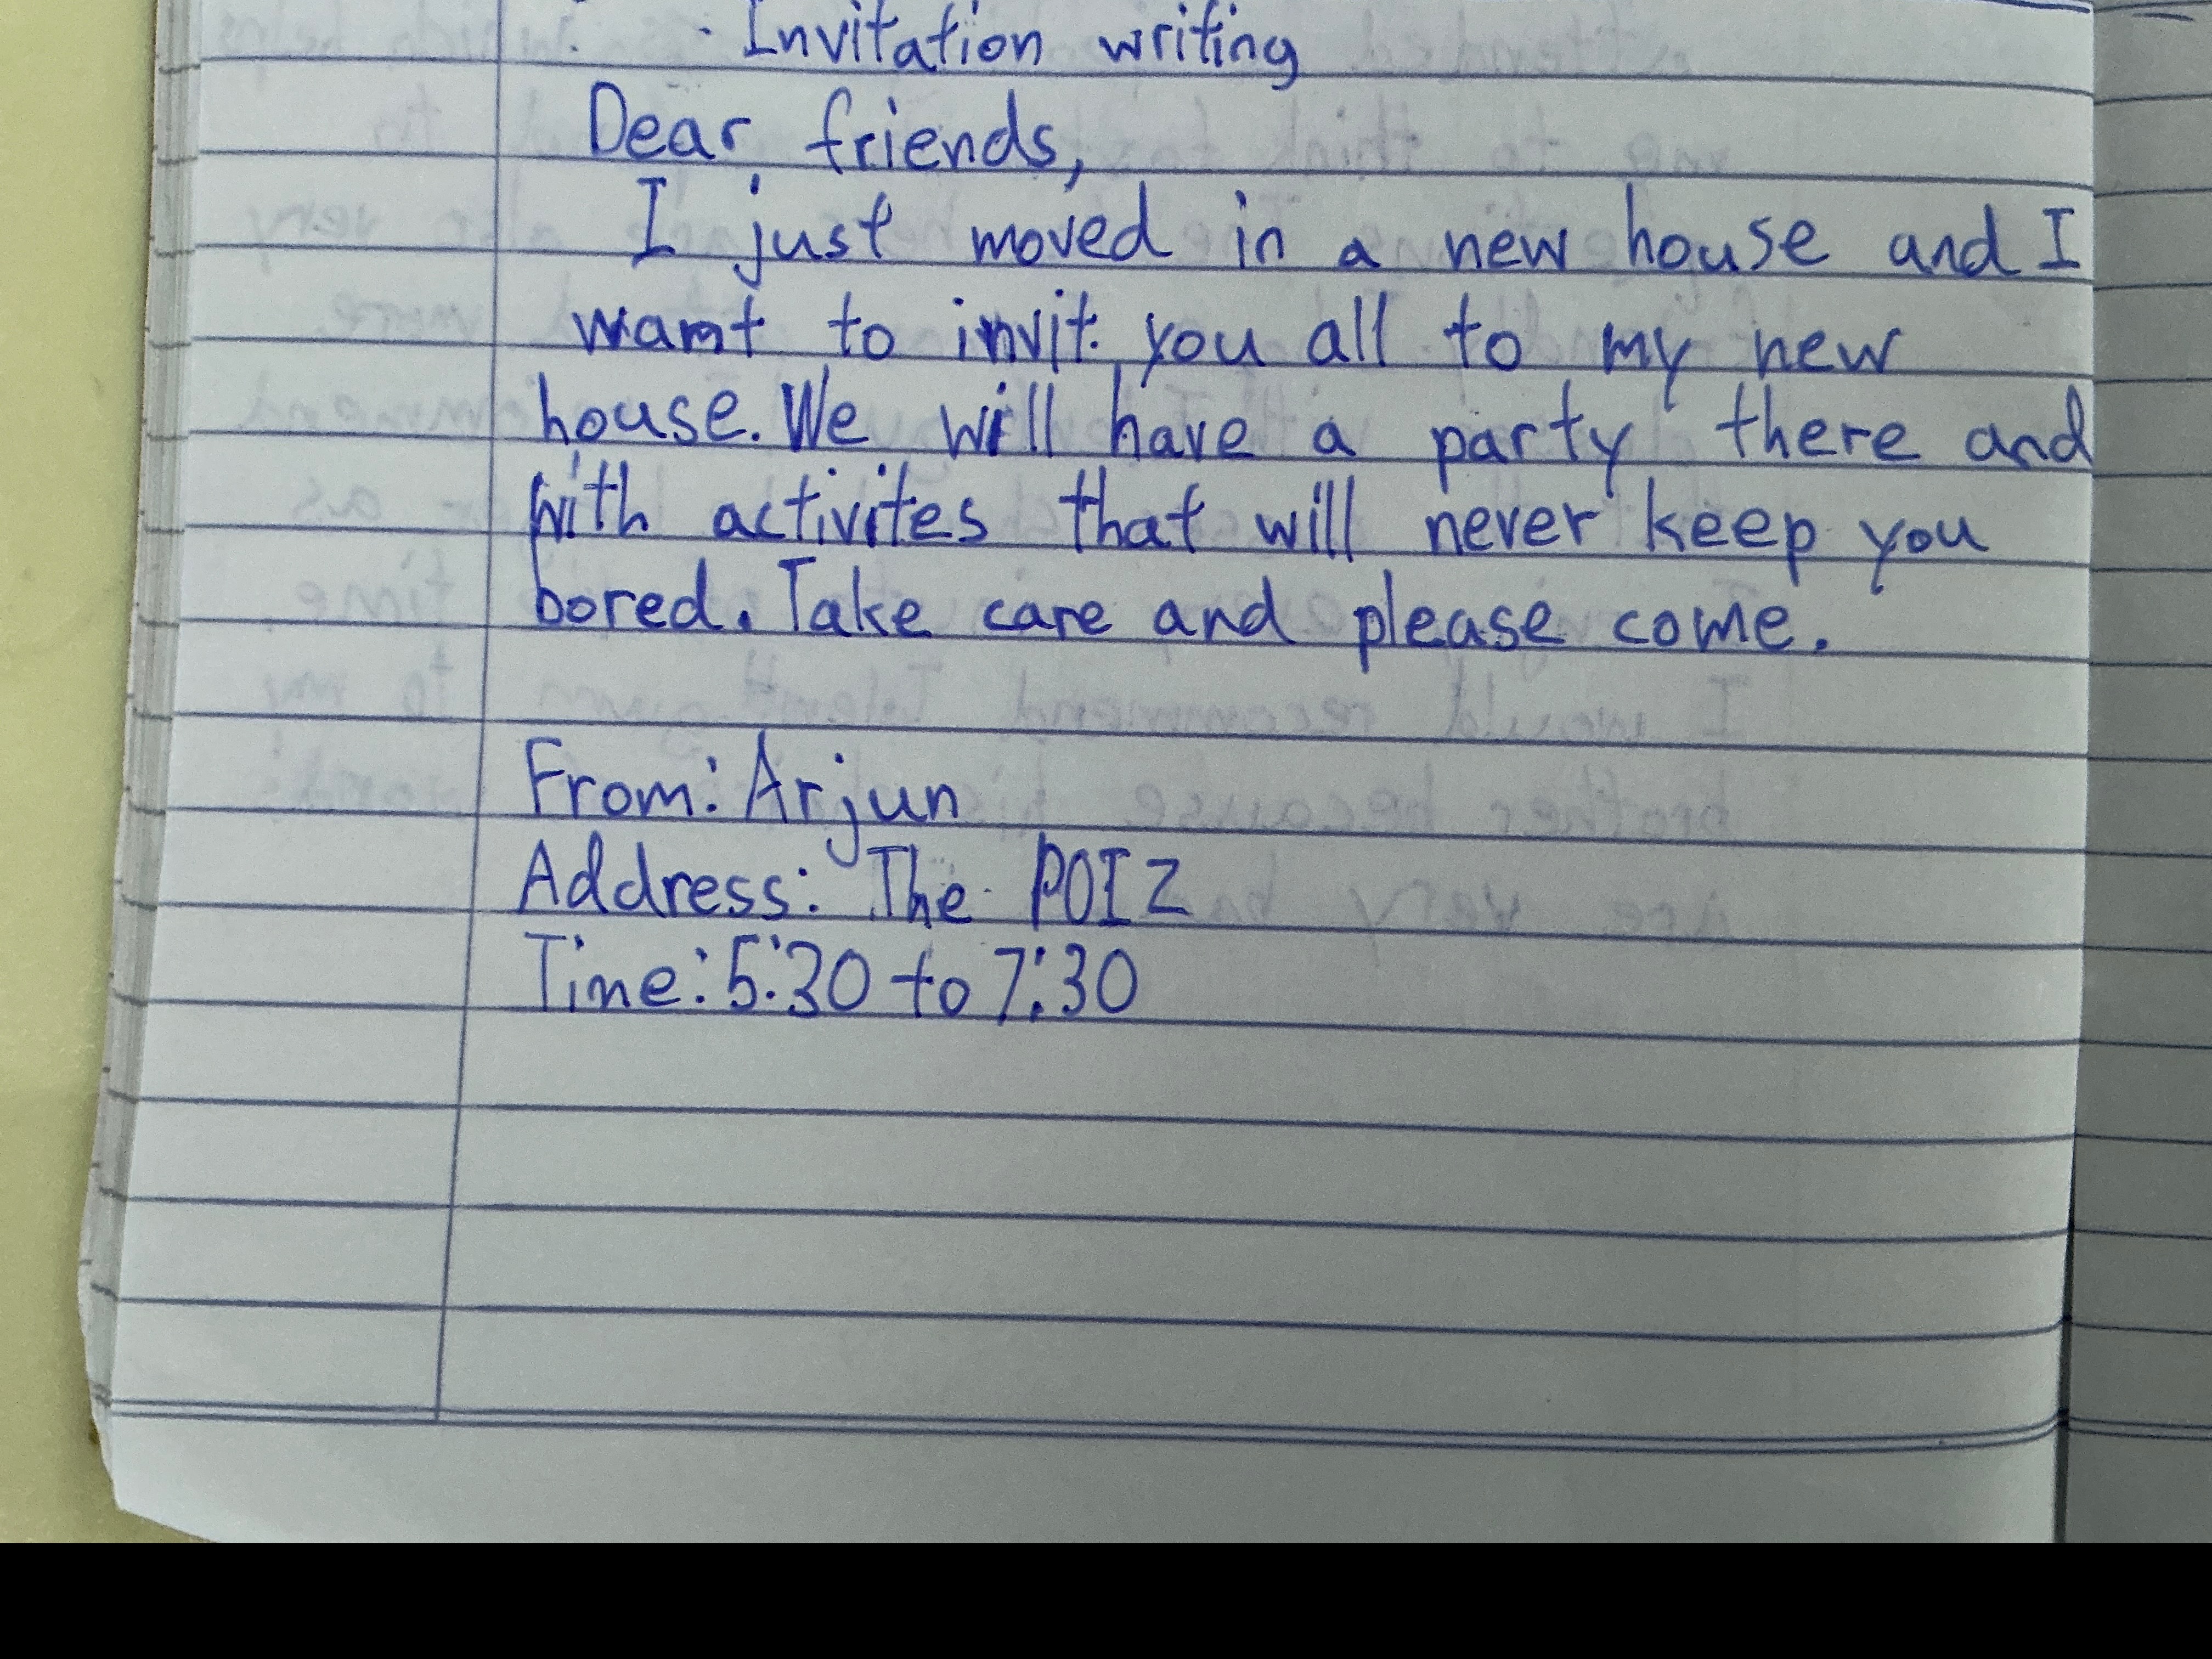 Invitation writing
Dear friends,
I just moved in a new house and I
want to invit you all to my new
house. We will have a party there and
with activites that will never keep you
bored. Take care and please come.
From: Arjun
Address: The POIZ
Time: 5:30 to 7:30